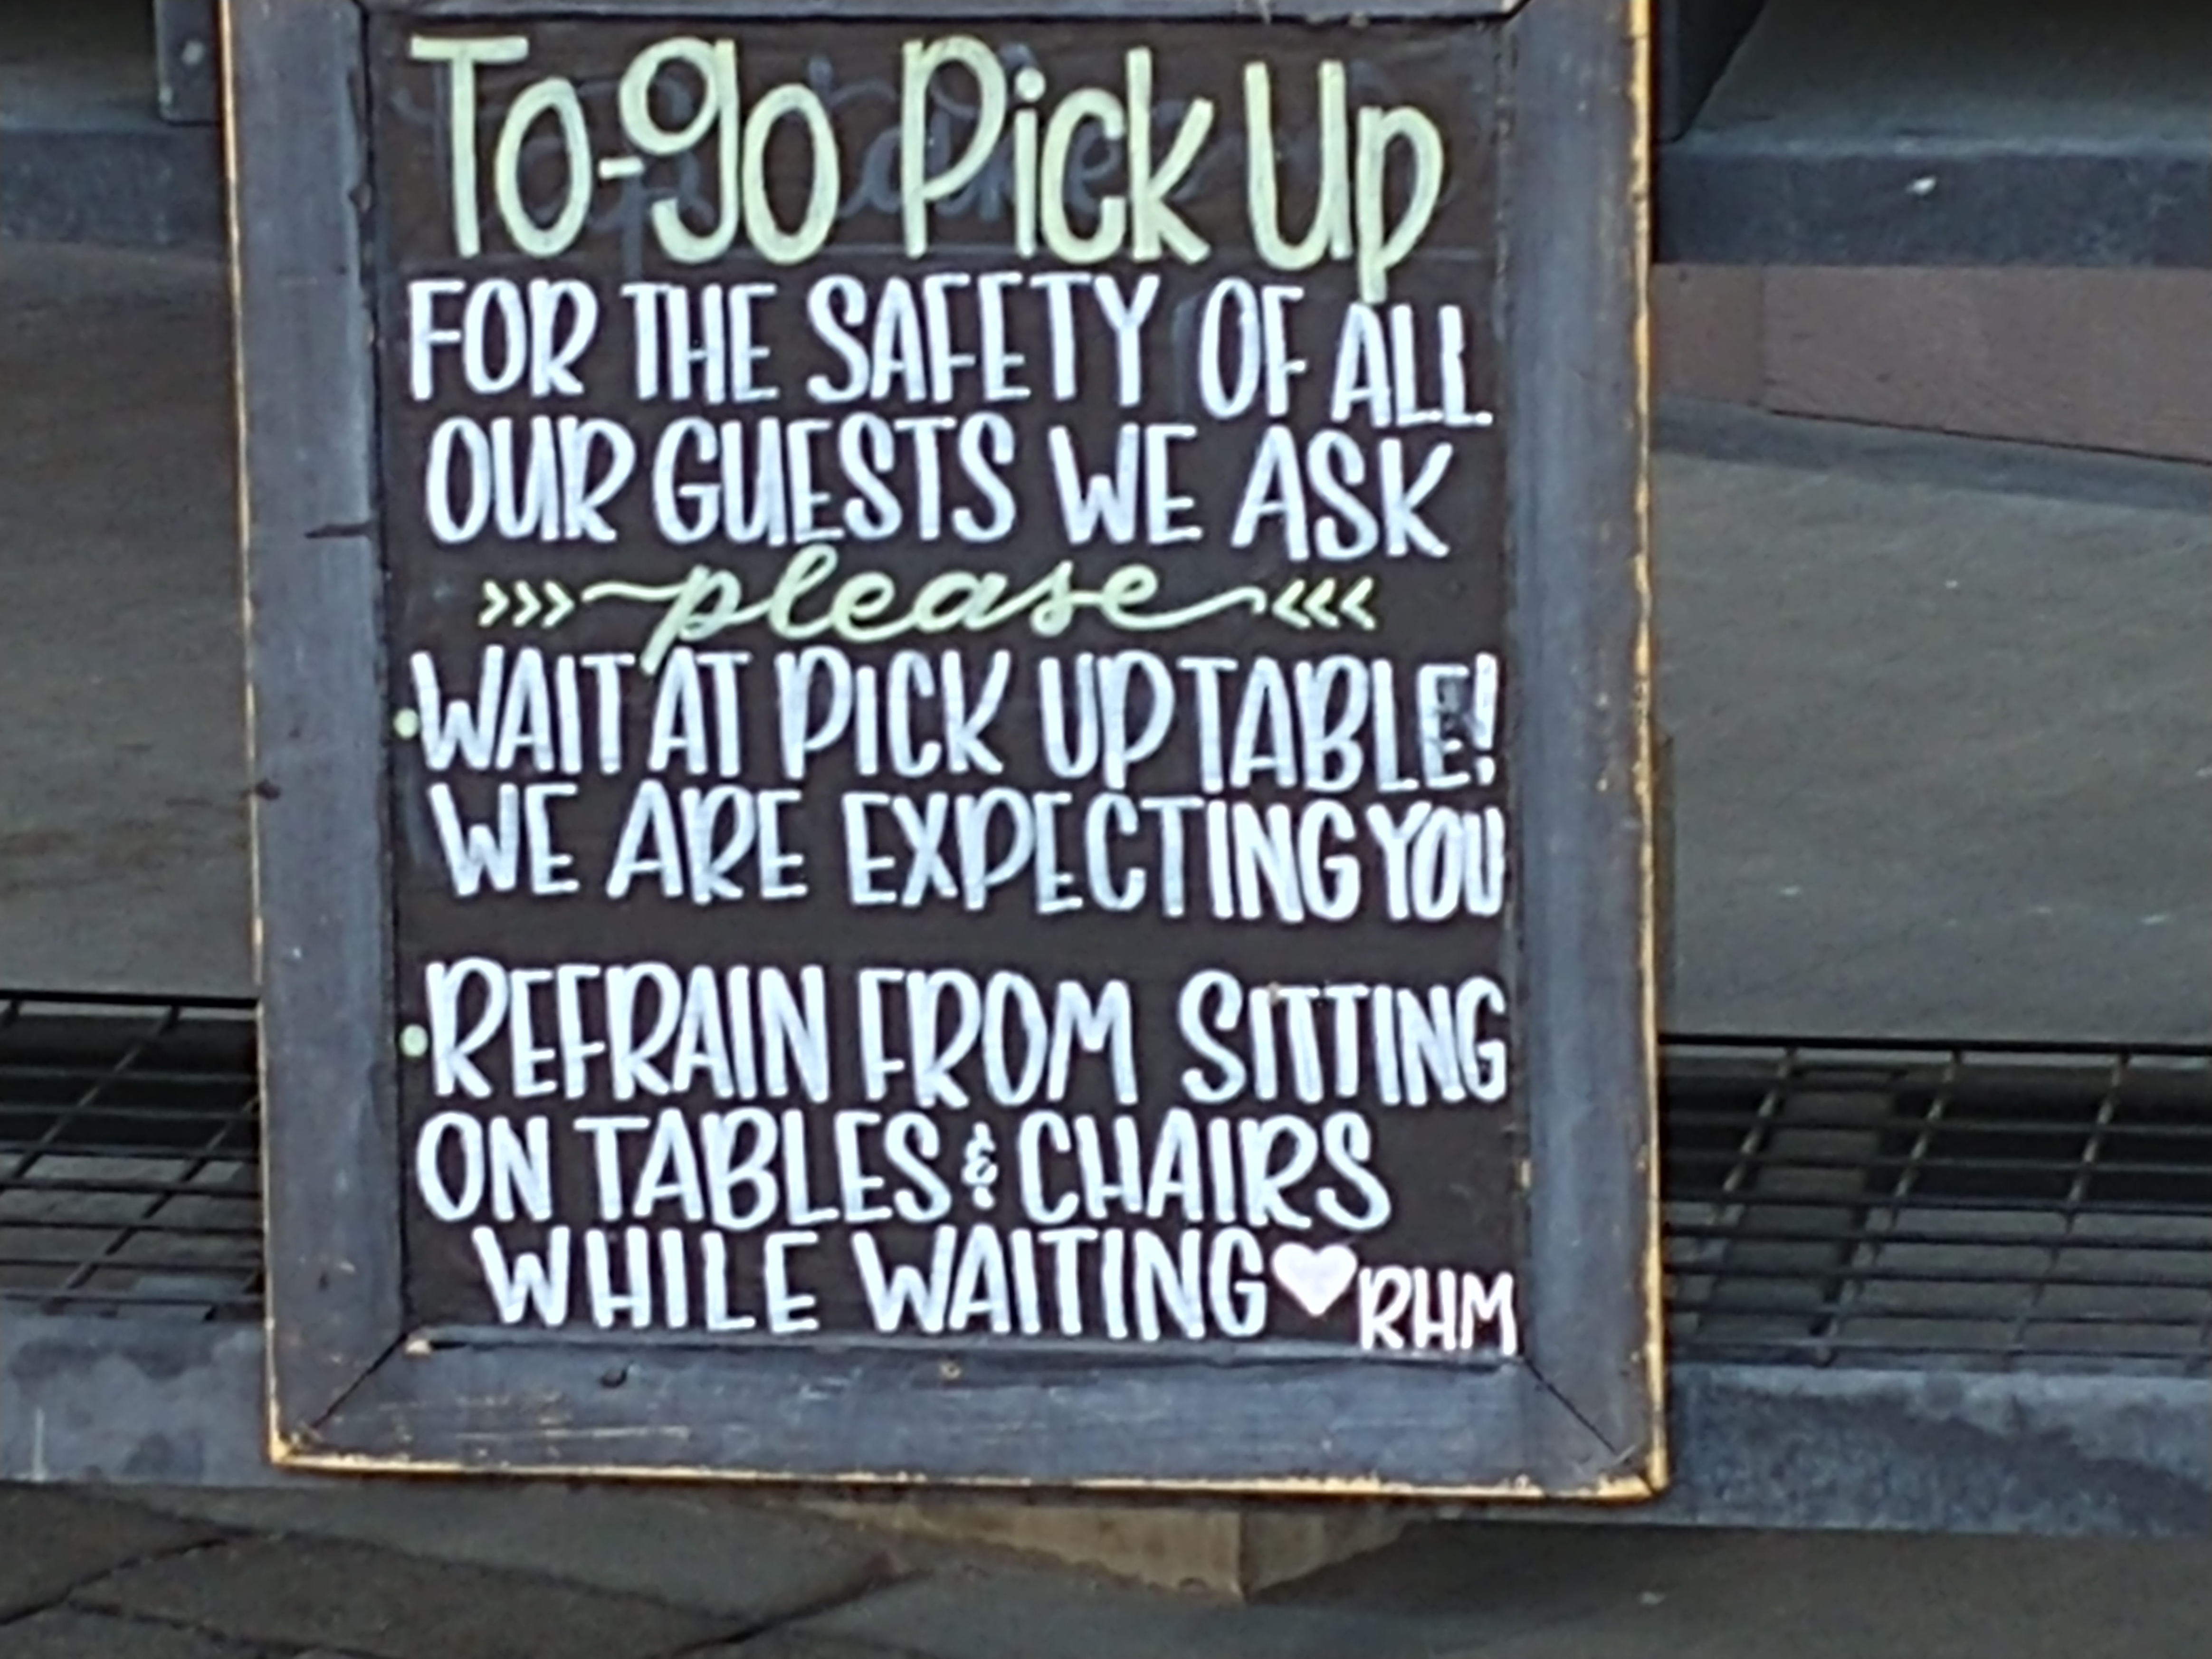 To-go Pick Up
FOR THE SAFETY OF ALL
OUR GUESTS WE ASK
>>> please <<<
•WAIT AT PICK UP TABLE!
WE ARE EXPECTING YOU
•REFRAIN FROM SITTING
ON TABLES & CHAIRS
WHILE WAITING♥RHM